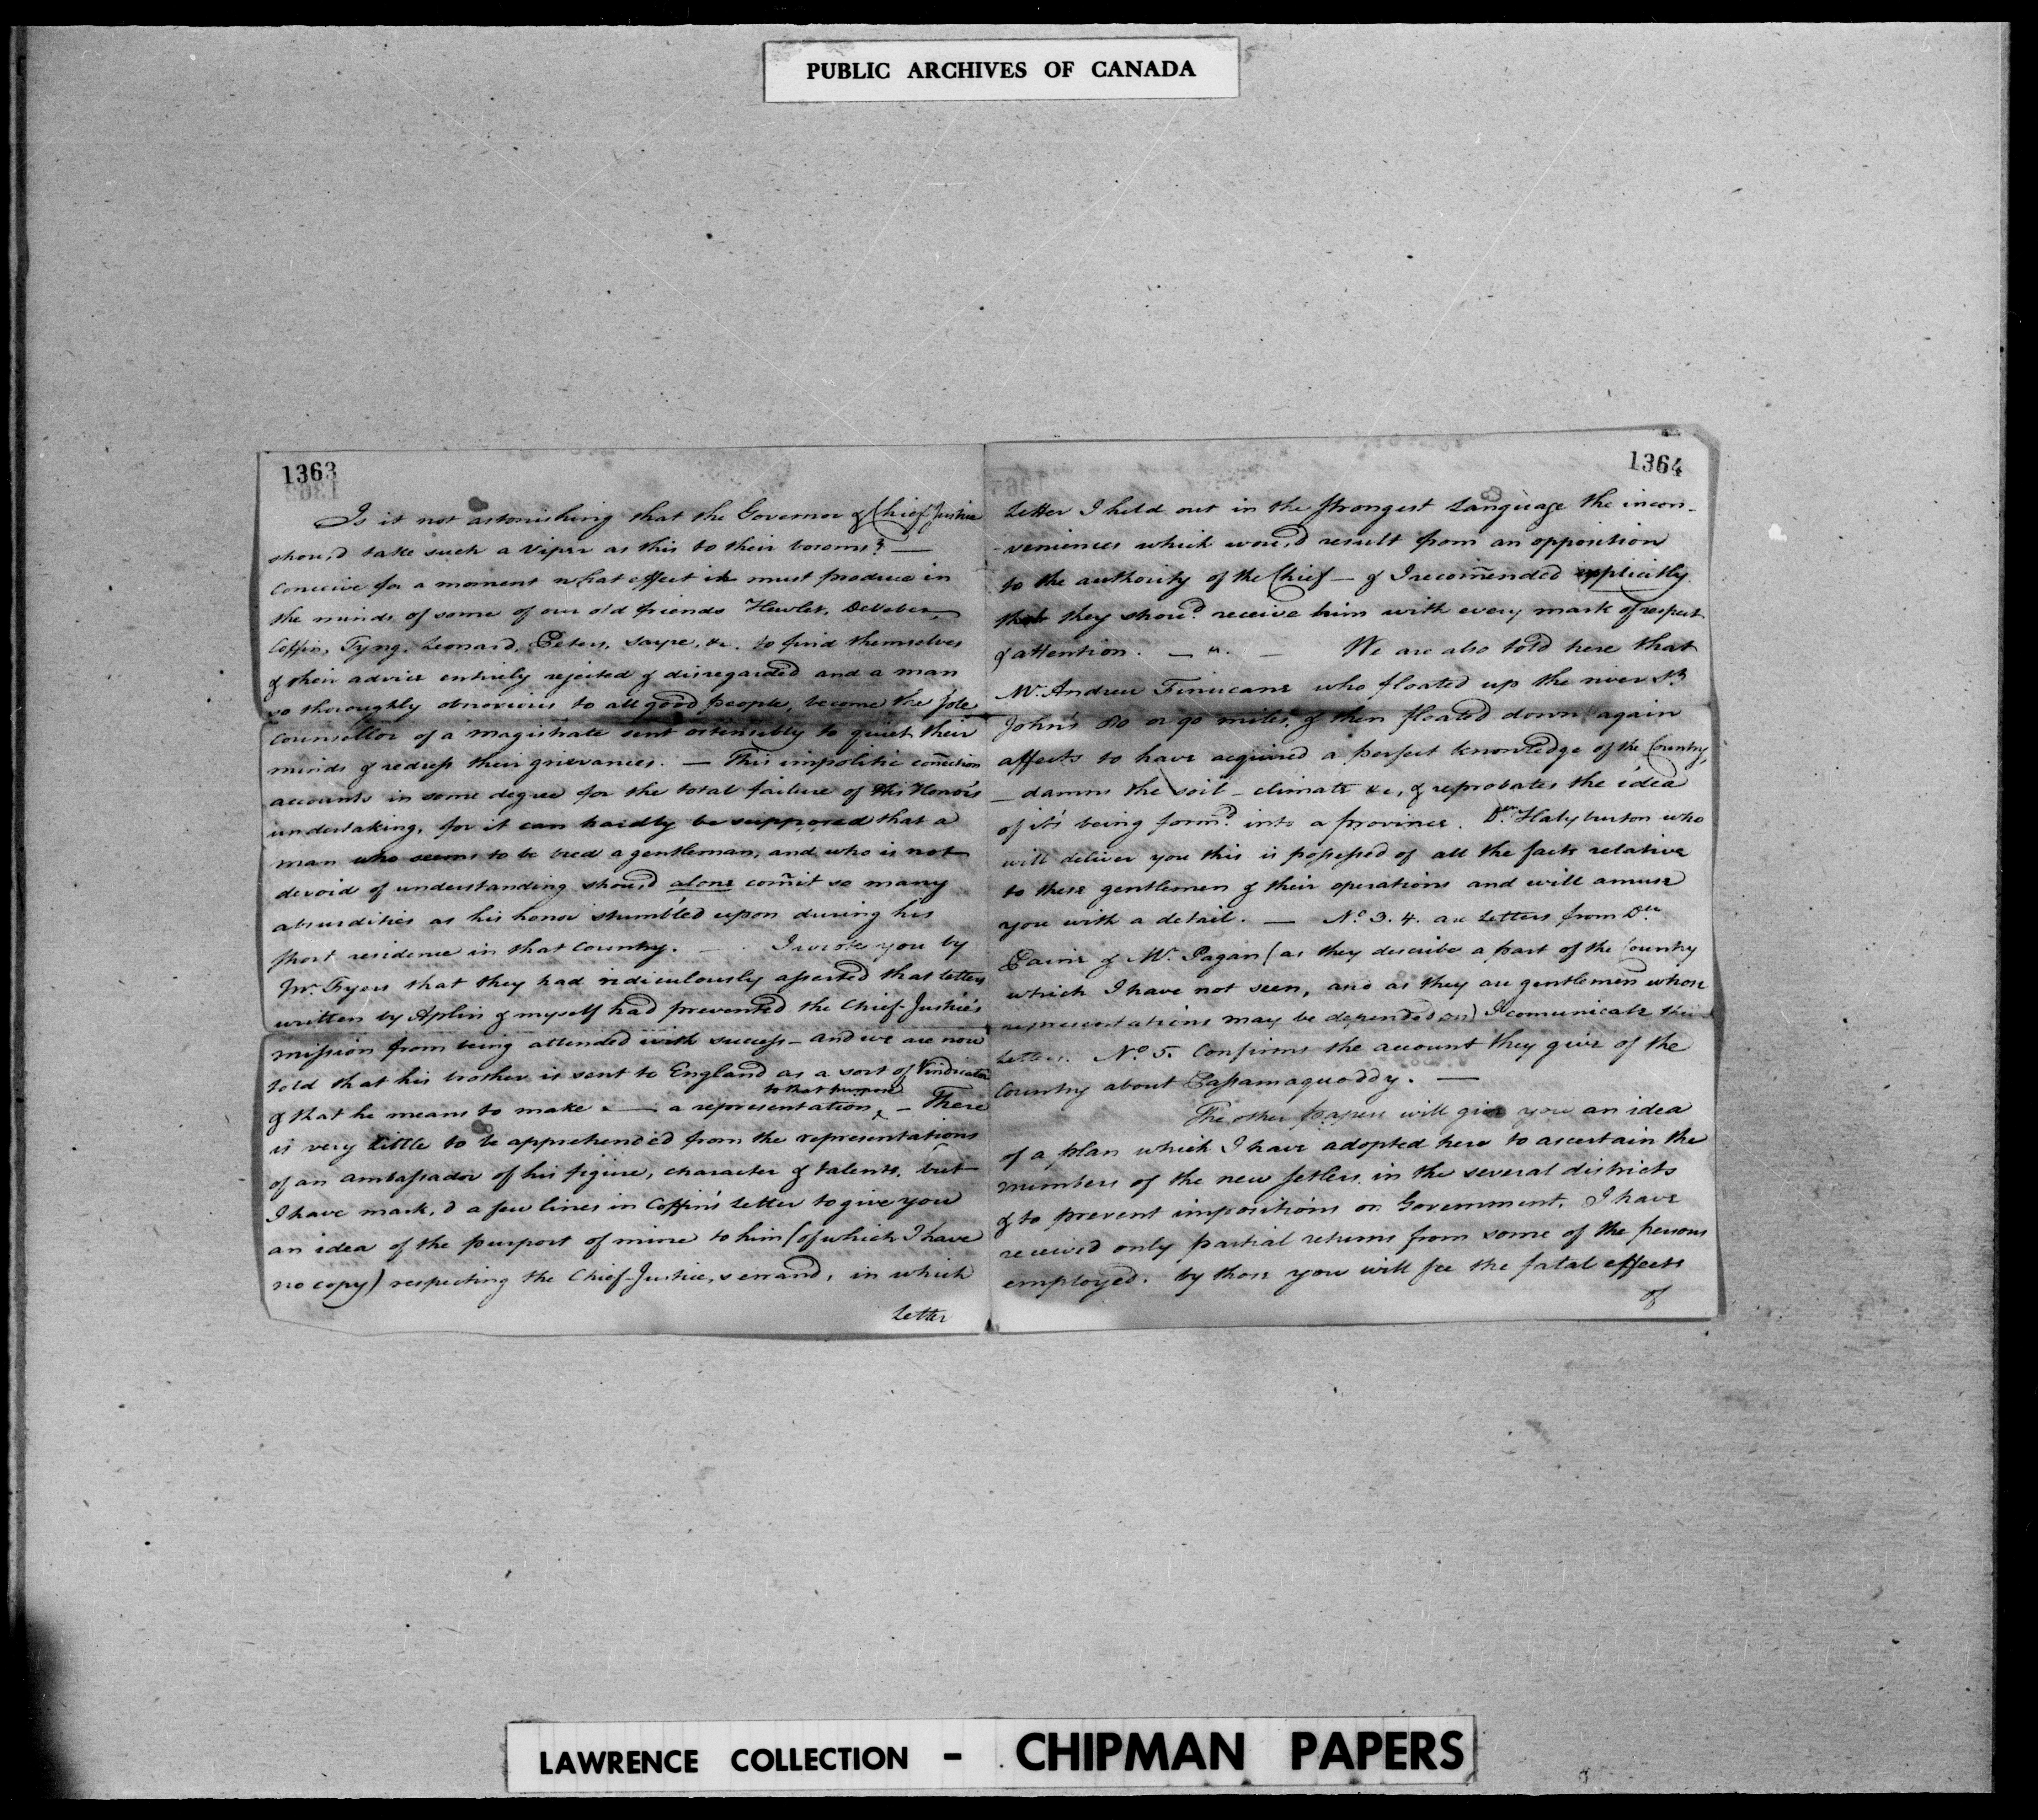 PUBLIC ARCHIVES OF CANADA
1363
Is it not astonishing that the Governor & Chief-Justice
shou,d take such a viper as this to their bosoms? —
conceive for a moment what effect it must produce in
the minds, of some of our old friends Hewlet, DeVeber,
Coffin, Tyng, Leonard, Peters, Sayre, &c. to find themselves
& their advice entirely rejected & disregarded and a man
so thoroughly obnoxious to all good people, become the sole
counsellor of a magistrate sent ostensibly to quiet their
minds & redress their grievances. — This impolitic connection
accounts in some degree for the total failure of His Honor's
undertaking, for it can hardly be supposed that a
man who seems to be bred a gentleman, and who is not
devoid of understanding shou,d alone com̄it so many
absurdities as his honor stumbled upon during his
short residence in that Country. — I wrote you by
Mr. Fyers that they had ridiculously asserted that letters
written by Aplin & myself had prevented the Chief-Justice's
mission from being attended with success — and we are now
told that his brother is sent to England as a sort of Vindicator
& that he means to make a representation to that purpose, — There
is very little to be apprehended from the representations
of an ambassador of his figure, character & talents, but
I have mark,d a few lines in Coffin's letter to give you
an idea of the purport of mine to him (of which I have
no copy) respecting the Chief-Justice,s errand, in which
Letter
1364
Letter I held out in the strongest Language the incon-
-veniences which wou,d result from an opposition
to the authority of the Chief — & I recom̄ended explicitly
that they shoud. receive him with every mark of respect
& attention. — " — We are also told here that
Mr. Andrew Finucane who floated up the river St.
John's 80 or 90 miles, & then floated down again
affects to have acquired a perfect knowledge of the Country,
— damns the soil — climate &c, & reprobates the idea
of it's being form'd into a province. Dr. Halyburton who
will deliver you this is possessed of all the facts relative
to these gentlemen & their operations and will amuse
you with a detail. — No. 3. 4. are Letters from Dr.
Paine & Mr. Pagan (as they describe a part of the Country
which I have not seen, and as they are gentlemen whose
representations may be depended on) I com̄unicate their
Letters. No. 5. Confirms the account they give of the
Country about Passamaquoddy. —
The other papers will give you an idea
of a plan which I have adopted here to ascertain the
numbers of the new settlers in the several districts
& to prevent impositions on Government. I have
received only partial returns from some of the persons
employed. by those you will see the fatal effects
of
LAWRENCE COLLECTION - CHIPMAN PAPERS